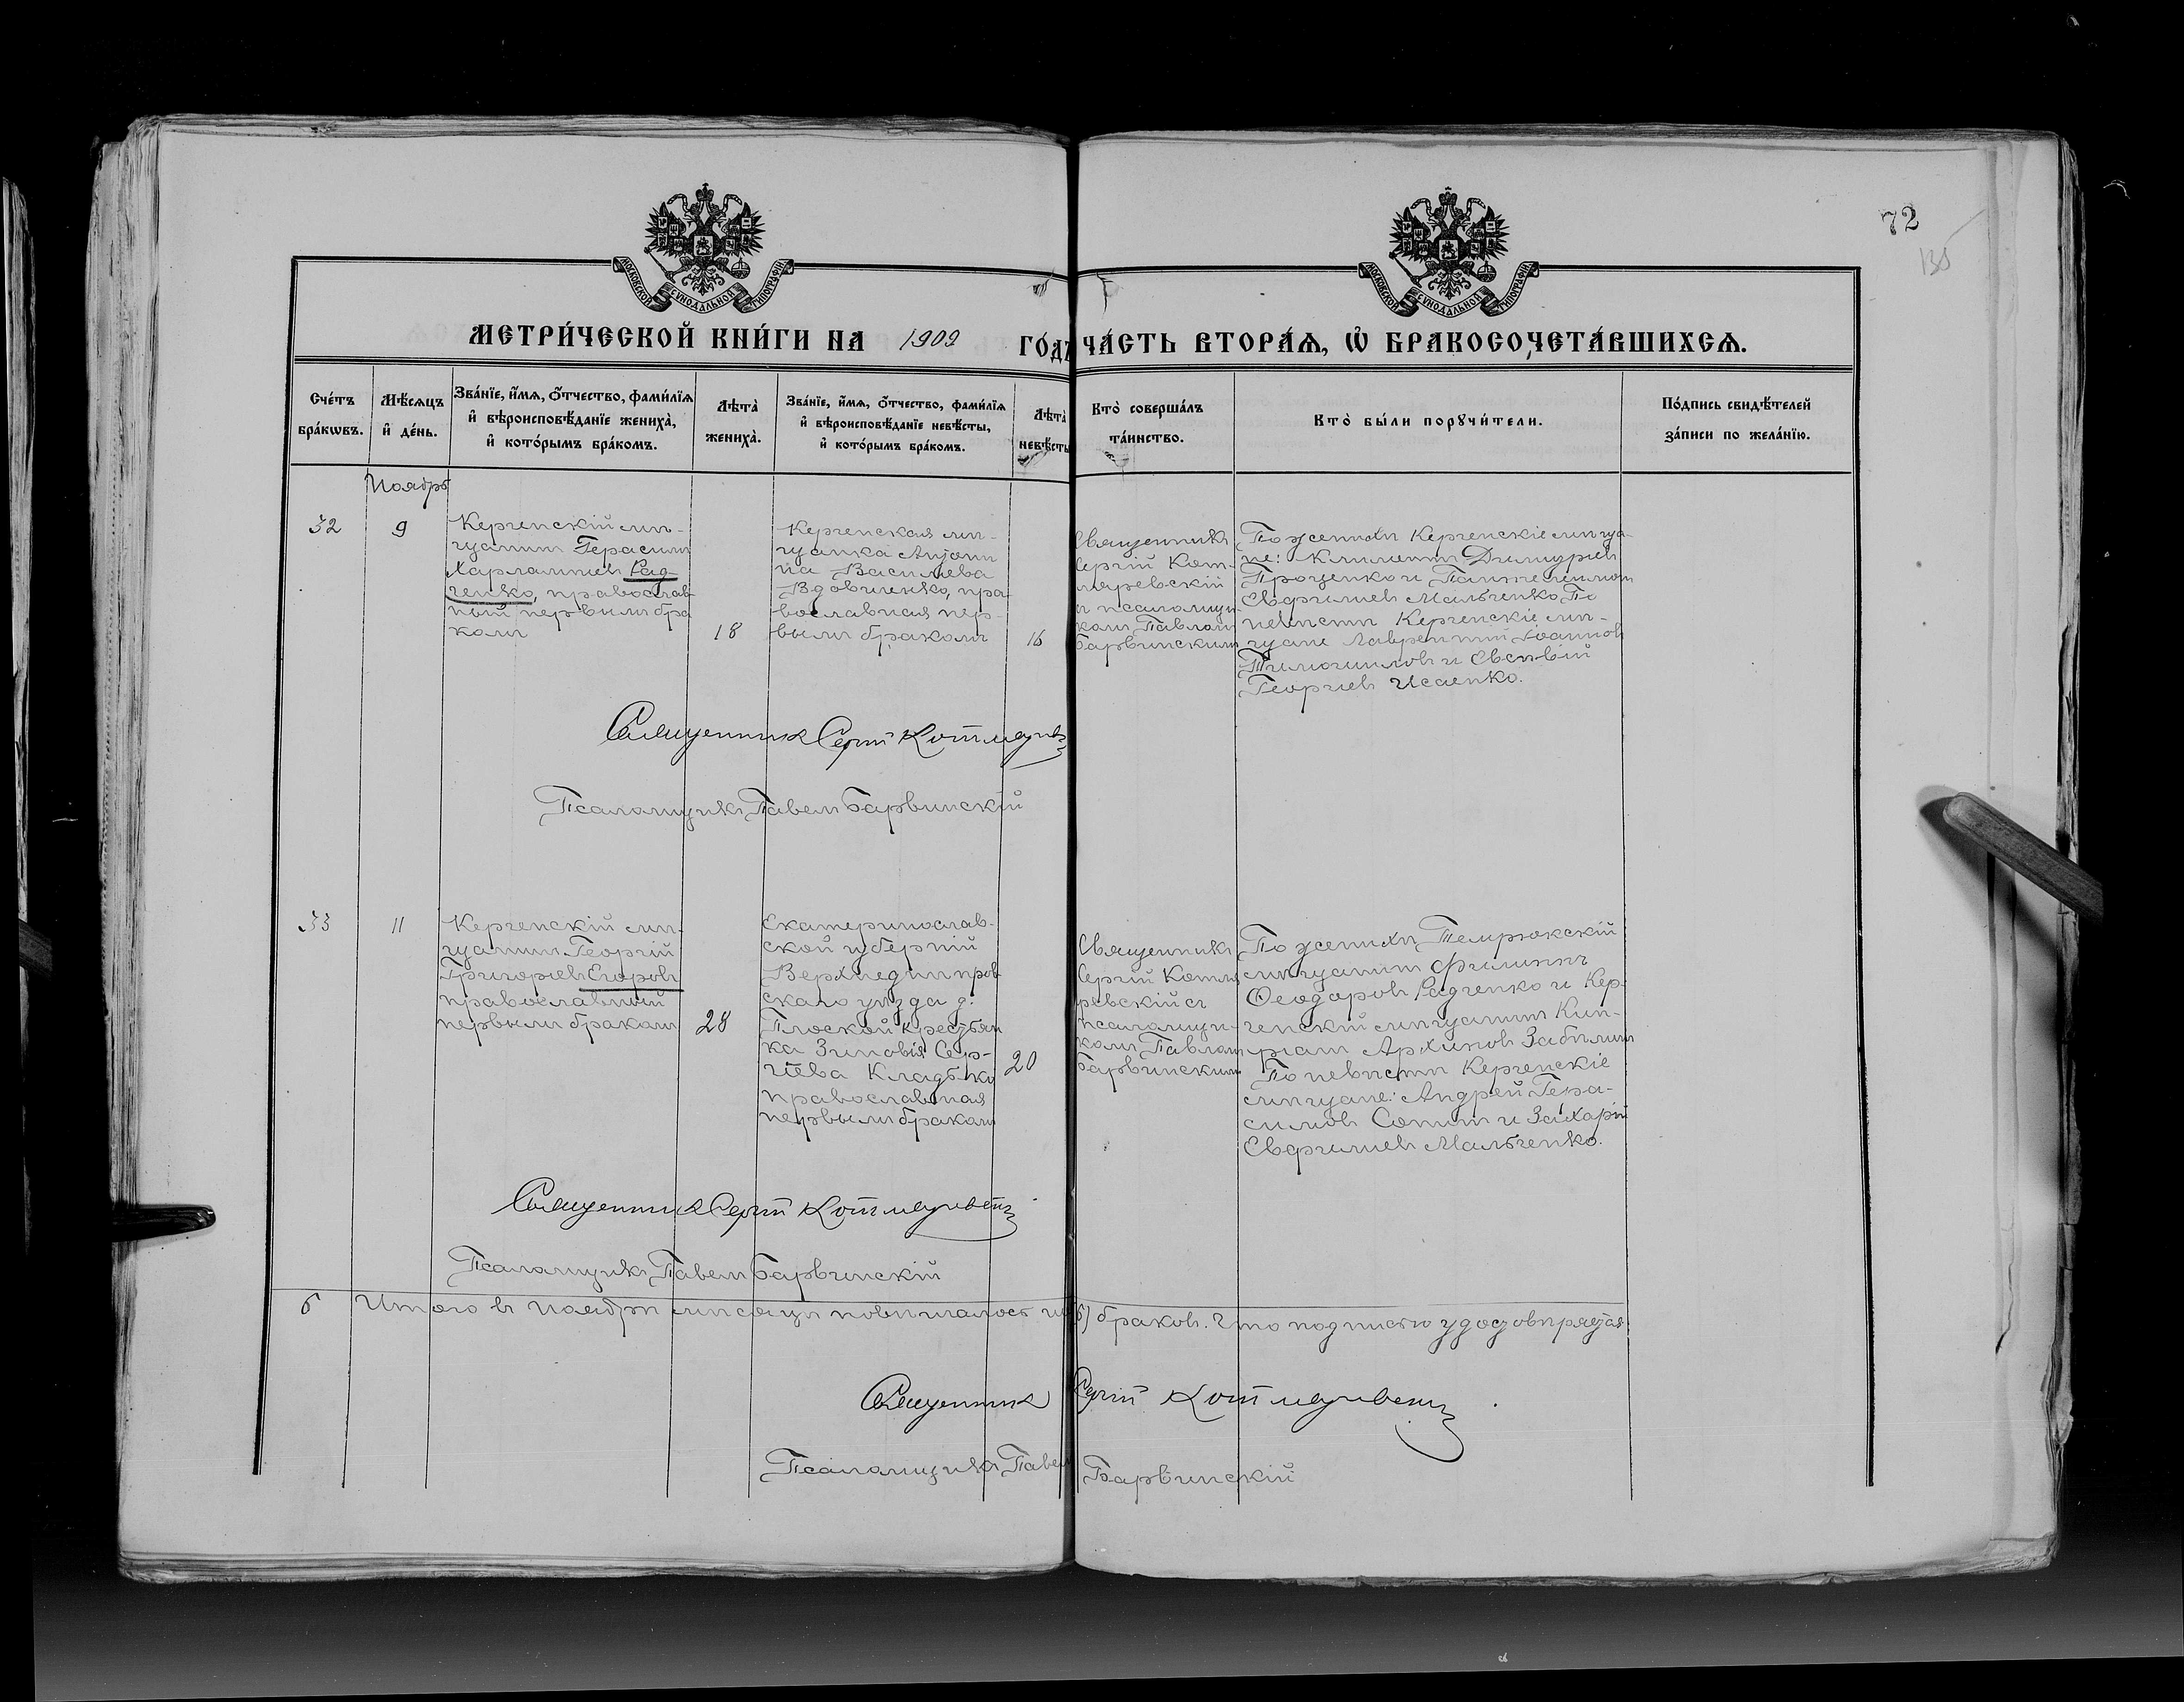 72
135
МОСКОВСКОЙ СѴНОДАЛЬНОЙ ТИПОГРАФІИ
МОСКОВСКОЙ СѴНОДАЛЬНОЙ ТИПОГРАФІИ
МЕТРИ́ЧЕСКОЙ КНИ́ГИ НА 1909 ГО́ДЪ
ЧА́СТЬ ВТОРА́Ѧ, Ѽ БРАКОСОЧЕТА́ВШИХСѦ.
Сче́тъ бра́кѡвъ.
Мѣ́сѧцъ и҆ де́нь.
Зва́нїе, и҆́мѧ, ѻ҆́тчество, фами́лїѧ и҆ вѣроисповѣ́данїе жениха̀, и҆ кото́рымъ бра́комъ.
Лѣта̀ жениха̀.
Зва́нїе, и҆́мѧ, ѻ҆́тчество, фами́лїѧ и҆ вѣроисповѣ́данїе невѣ́сты, и҆ кото́рымъ бра́комъ.
Лѣта̀ невѣ́сты
Кто̀ соверша́лъ та́инство.
Кто̀ бы́ли порꙋчи́тели.
По́дпись свидѣ́телей за́писи по жела́нїю.
Ноябрь
32
9
Керченскій мѣ-
щанинъ Герасимъ
Харлампіевъ Рад-
ченко, православ
ный первымъ бра
комъ
18
Керченская мѣ-
щанка Антони
на Васильева
Вдовиченко, пра
вославная пер-
вымъ бракомъ
16
Священникъ
Сергій Кот-
ляревскій
съ псаломщи
комъ Павломъ
Барвинскимъ
По женихѣ Керченскіе мѣща-
не: Климентъ Димитріевъ
Проценко и Пантелеимонъ
Евфиміевъ Мальченко. По
невѣстѣ Керченскіе мѣ-
щане Лаврентій Іоанновъ
Тимошиловъ и Евсевій
Георгіевъ Исаенко.
Священникъ Сергій Котляревскій
Псаломщикъ Павелъ Барвинскій
33
11
Керченскій мѣ-
щанинъ Георгій
Григорьевъ Егоровъ
православный
первымъ бракомъ
28
Екатеринослав-
ской губерніи
Верхнеднѣпров
скаго уѣзда д.
Плоской крестьян
ка Зиновія Сер-
гіева Кладько
православная
первымъ бракомъ
20
Священникъ
Сергій Котля
ревскій съ
псаломщи-
комъ Павломъ
Барвинскимъ
По женихѣ Темрюкскій
мѣщанинъ Филиппъ
Ѳеодоровъ Радченко и Кер-
ченскій мѣщанинъ Кип-
ріанъ Архиповъ Забѣлинъ
По невѣстѣ Керченскіе
мѣщане: Андрей Гера-
симовъ Сотин и Захарій
Евфиміевъ Мальченко.
Священникъ Сергій Котляревскій
Псаломщикъ Павелъ Барвинскій
6 Итого въ Ноябрѣ мѣсяцѣ повѣнчалось (6) браковъ. Что подписью удостовѣряется.
Священникъ Сергій Котляревскій
Псаломщикъ Павелъ Барвинскій